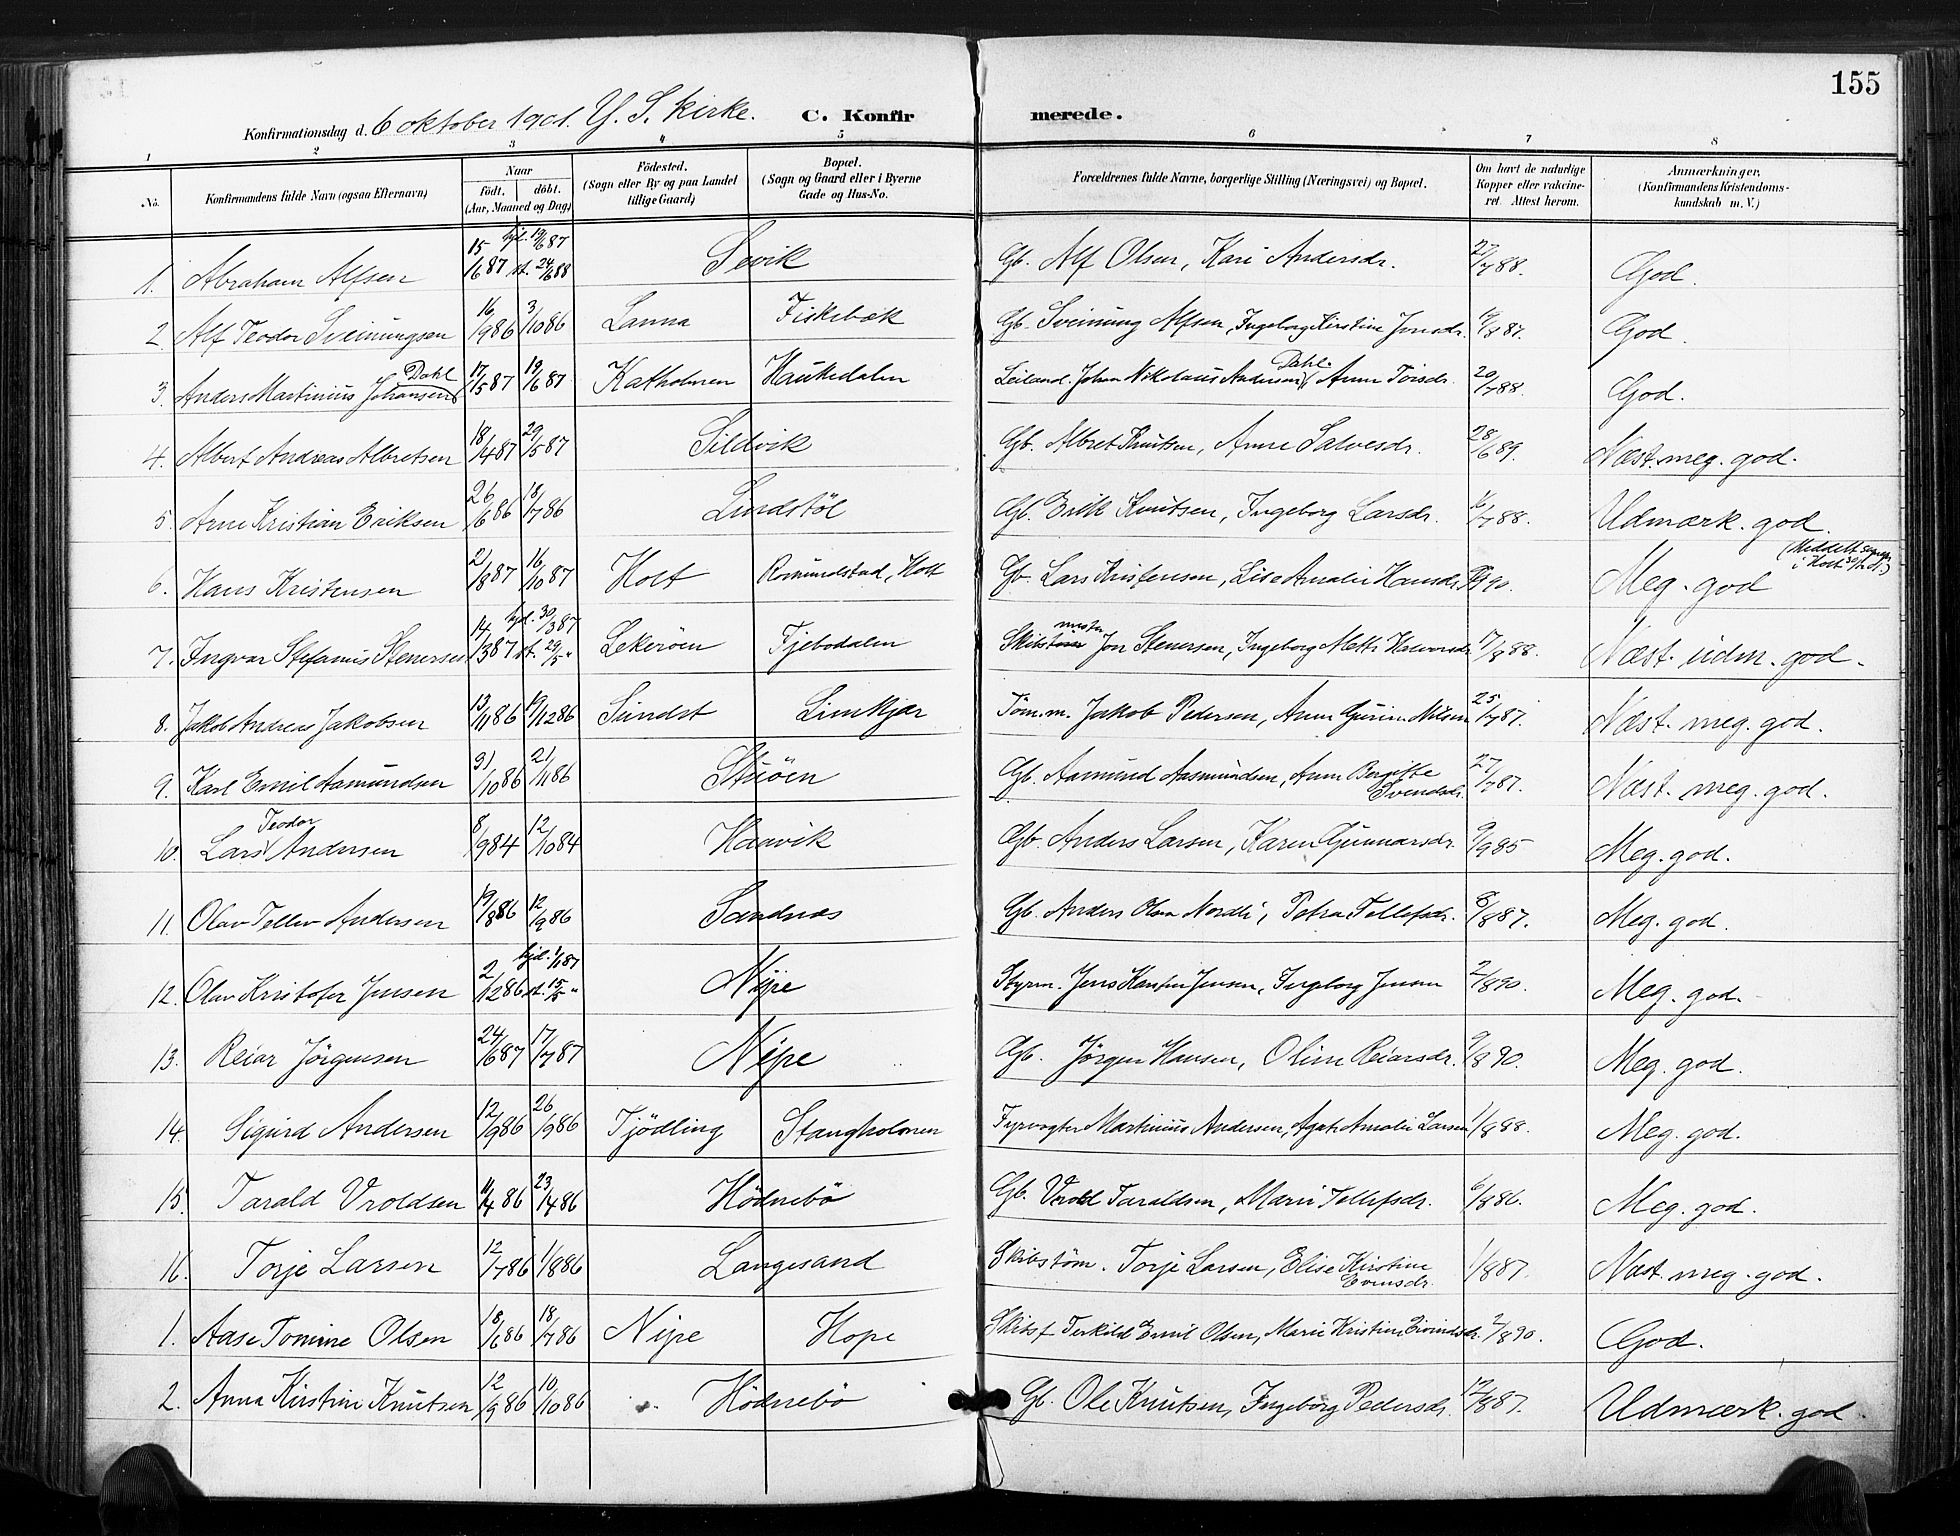 155
Konfirmationsdag d. 6 oktober 1901. Y. S. kirke. C. Konfirmerede.
1 2 3 4 5 6 7 8
No. Konfirmandens fulde Navn (ogsaa Efternavn) Naar födt, döbt. (Aar, Maaned og Dag) Födested. (Sogn eller By og paa Landet tillige Gaard) Bopæl. (Sogn og Gaard eller i Byerne Gade og Hus-No. Forældrenes fulde Navne, borgerlige Stilling (Næringsvei) og Bopæl. Om havt de naturlige Kopper eller vakcineret. Attest herom. Anmærkninger, (Konfirmandens Kristendomskundskab m. V.)
1. Abraham Alfsen 15/6 87 hjd. 19/6 87 st. 24/6 88 Sevik Gb. Alf Olsen, Kari Andersdr. 27/7 88. God.
2. Alf Teodor Sveinungsen 16/9 86 3/10 86 Lanna Fiskebæk Gb. Sveinung Alfsen, Ingeborg Kirstine Jonsdr. /8 87. God.
3. Anders Martinius Johansen Dahl 17/5 87 19/6 87 Katholmen Haukedalen Leiland. Johan Nikolaus Andersen Dahl, Anne Torisdr. 20/7 88. God.
4. Albert Andreas Albretsen 18/4 87 29/5 87 Sildvik Gb. Albret Knutsen, Anne Salvesdr. 28/6 89. Næst. meg. god.
5. Arne Kristian Eriksen 26/6 86 18/7 86 Lindstöl Gb. Erik Knutsen, Ingeborg Larsdr. 16/7 88. Udmærk. god.
6. Hans Kristensen 2/8 87 16/10 87 Holt Romundstad, Holt Gb. Lars Kristensen, Lise Amalie Hansdr. 90. Meg. god (Meddelt sognepr. i Holt
7. Ingvar Stefanus Stenersen 14/3 87 hjd. 30/3 87 st. 29/5 " Lekeröen Fjebodalen Skibstömmester Jon Stenersen, Ingeborg Mette Halvorsdr. 17/8 88. Næst. udm. god.
8. Jakob Andreas Jakobsen 13/11 86 19/12 86 Sundet Limkjær Töm.m. Jakob Pedersen, Anne Gurine Nilsen 25/7 87. Næst. meg. god.
9. Karl Emil Aasmundsen 31/10 86 21/11 86 Stuöen Gb. Aasmund Aasmundsen, Anne Birgitte Svendsdr. 27/7 87. Næst. meg. god.
10. Lars Teodor Andersen 8/9 84 12/10 84 Haavik Gb. Anders Larsen, Karen Gunnarsdr. 9/9 85 Meg. god.
11. Olav Tellev Andersen 19/8 86 12/9 86 Sandnæs Gb. Anders Olsen Nordli, Petra Tellefsdr. 8/8 87. Meg. god.
12. Olav Kristofer Jensen 2/12 86 hjd. 1/1 87 st. 15/5 " Nipe Styrm. Jens Jensen, Ingeborg Jensen 2/8 90. Meg. god.
13. Reiar Jörgensen 24/6 87 17/7 87 Nipe Gb. Jörgen Hansen, Oline Reiarsdr. 9/8 90. Meg. god.
14. Sigurd Andersen 12/9 86 26/9 86 Tjödling Stangholmen Fyrvogter Martinius Andersen, Agate Amalie Larsen 1/8 88. Meg. god.
15. Tarald Vroldsen 11/4 86 23/4 86 Hödnebö Gb. Vrold Taraldsen, Marie Tellefsdr. 6/8 86. Meg. god.
16. Torje Larsen 12/7 86 1/8 86 Langesand Skibstöm. Torje Larsen, Elise Kirstine Evensdr. 1/8 87. Næst. meg. god.
1. Aase Tomine Olsen 18/6 86 18/7 86 Nipe Hope Skibsf. Terkild Emil Olsen, Marie Kristine Eivindsdr. 2/8 90. God.
2. Anna Kirstine Knutsen 12/9 86 10/10 86 Hödnebö Gb. Ole Knutsen, Ingeborg Pedersdr. 12/8 87. Udmærk. god.